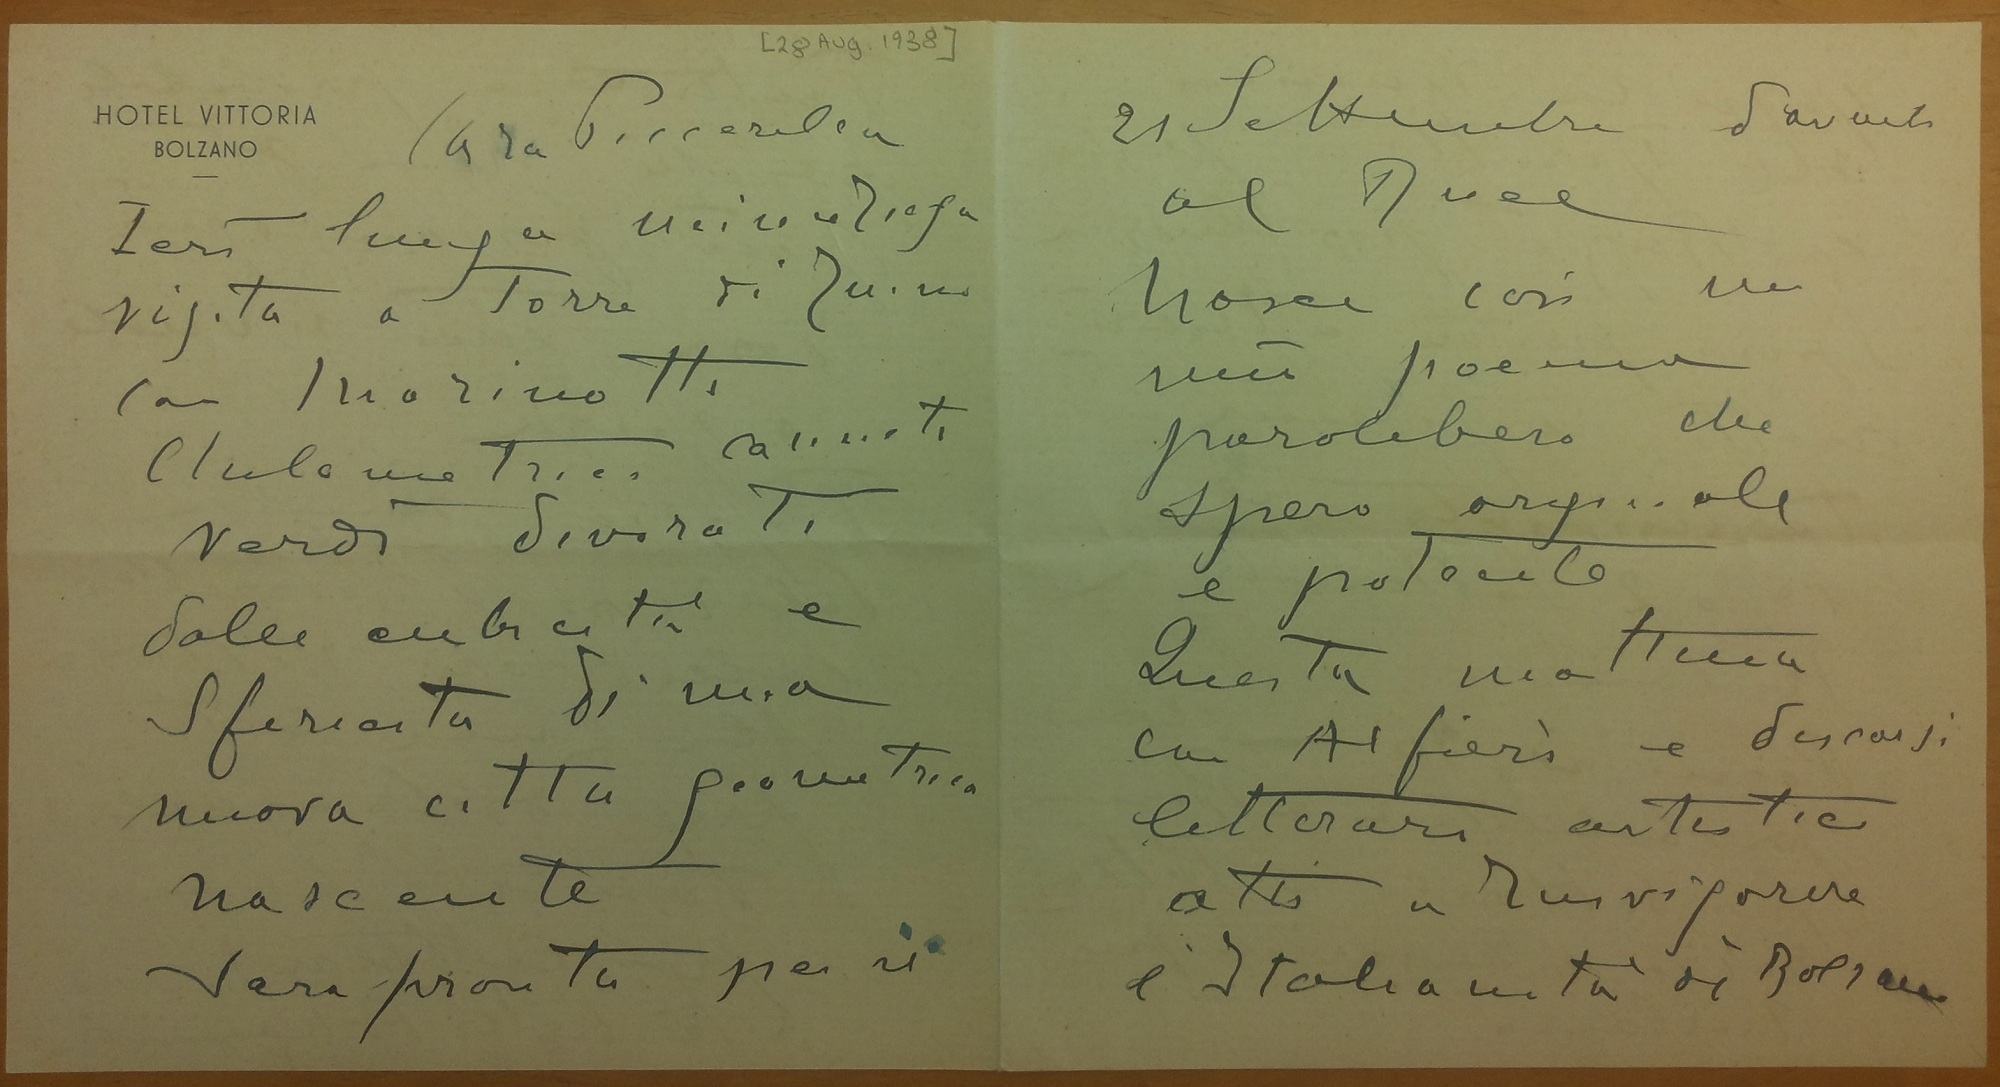 [28 Aug. 1938]
HOTEL VITTORIA
BOLZANO
Cara Piccarella
Ieri lunga minuziosa
visita a Torre di Zuino
con Marinotti
Chilometrici canneti
verdi divorati
dalle cubicità e
Sfericità di una
nuova città geometrica
nascente
Sara pronta per il
21 Settembre davanti
al Duce
Nasce così un
mio poema
parolibero che
spero originale
e potente
Questa mattina
con Alfieri e discorsi
letterari artistici
atti a rinvigorire
l'Italianità di Bolzano